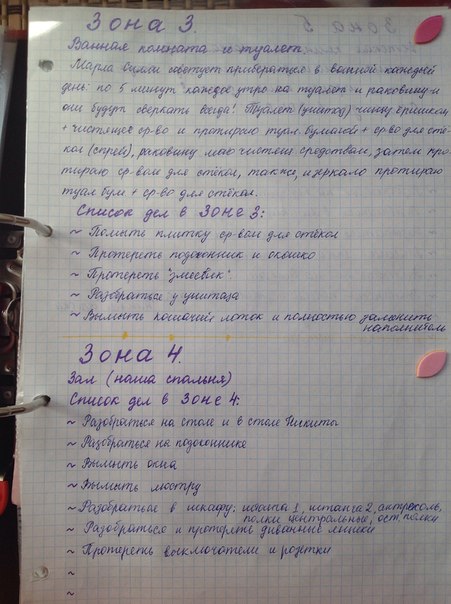 Зона 3.
Ванная комната и туалет.
Марла Силли советует прибераться в ванной каждый
день: по 5 минут каждое утро на туалет и раковину и
они будут сверкать всегда! Туалет (унитаз) чищу ёршиком
+ чистящее ср-во и протираю туал. бумагой + ср-во для стё-
кол (спрей), раковину мою чистящ средством, затем про-
тираю ср-вом для стёкол, также, и зеркало протираю
туал бум + ср-во для стёкол.
Список дел в Зоне 3:
~ Помыть плитку ср-вом для стёкол
~ Протереть подоконник и окошко
~ Протереть "змеевик".
~ Разобраться у унитаза
~ Вымыть кошачий лоток и полностью заменить
наполнитель
Зона 4.
Зал (наша спальня)
Список дел в Зоне 4:
~ Разобраться на столе и в столе Никиты
~ Разобраться на подоконнике
~ Вымыть окна
~ Вымыть люстру
~ Разобраться в шкафу: штанга 1, штанга 2, антресоль,
полки центральные, ост. полки
~ Разобраться и протереть диванные ящики
~ Протереть выключатели и розетки
~
~